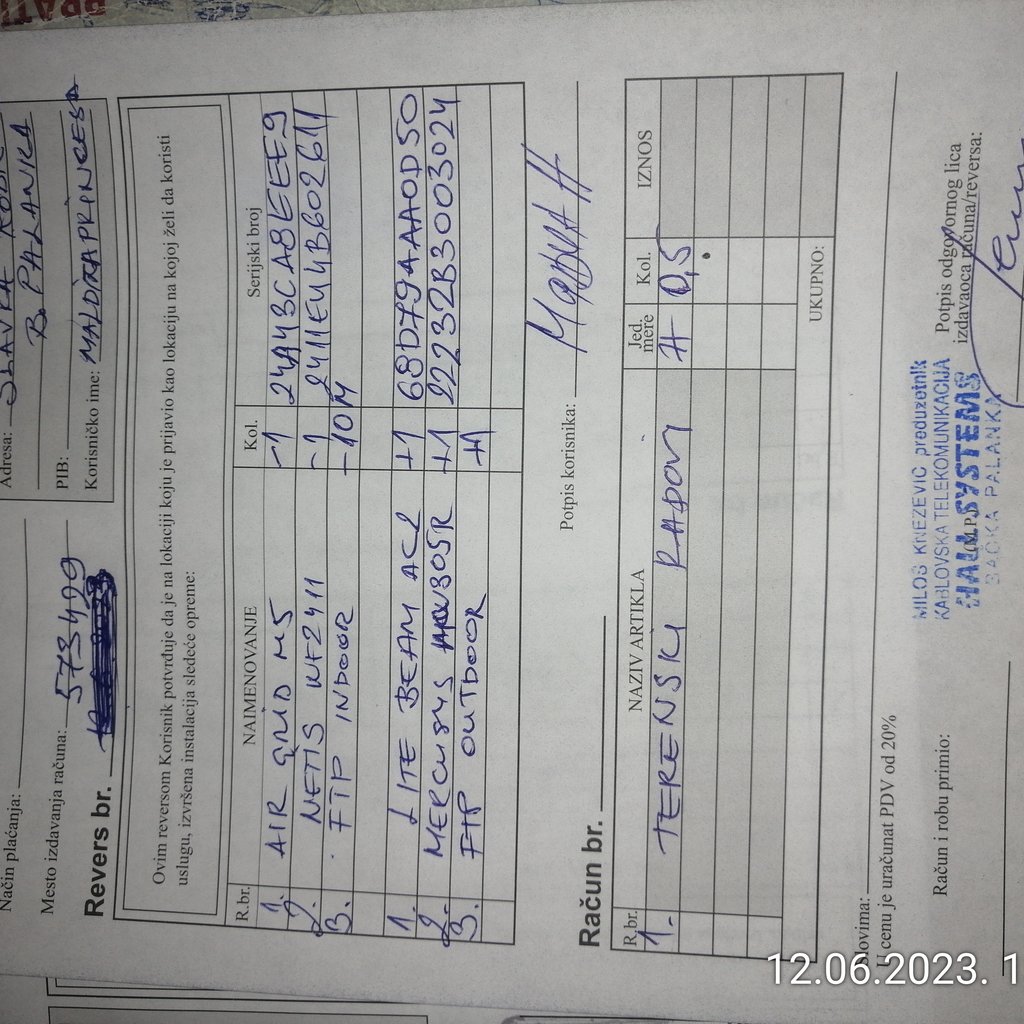 PRATI
Način plaćanja:
Mesto izdavanja računa: 573499
Revers br.
Adresa: SLAVKA
B. PALANKA
PIB:
Korisničko ime: MALDITAPRINCESA
Ovim reversom Korisnik potvrđuje da je na lokaciji koju je prijavio kao lokaciju na kojoj želi da koristi
uslugu, izvršena instalacija sledeće opreme:
R.br. NAIMENOVANJE Kol. Serijski broj
1. AIR GRID M5 -1 24A43CA8EEE9
2. NETIS WF2411 -1 2411E4B602611
3. FTP INDOOR -10M
1. LITE BEAM AC2 +1 68D79AAA0D50
2. MERCUSYS MW305R +1 22232B3003024
3. FTP OUTDOOR +1
Potpis korisnika:
Račun br.
R.br. NAZIV ARTIKLA Jed. mere Kol. IZNOS
1. TERENSKI RADOVI H 0,5
UKUPNO:
Slovima:
U cenu je uračunat PDV od 20%
Račun i robu primio:
(M.P.)
MILOŠ KNEZEVIC preduzetnik
KABLOVSKA TELEKOMUNIKACIJA
HALL SYSTEMS
BACKA PALANKA
Potpis odgovornog lica
izdavaoca računa/reversa:
12.06.2023. 1